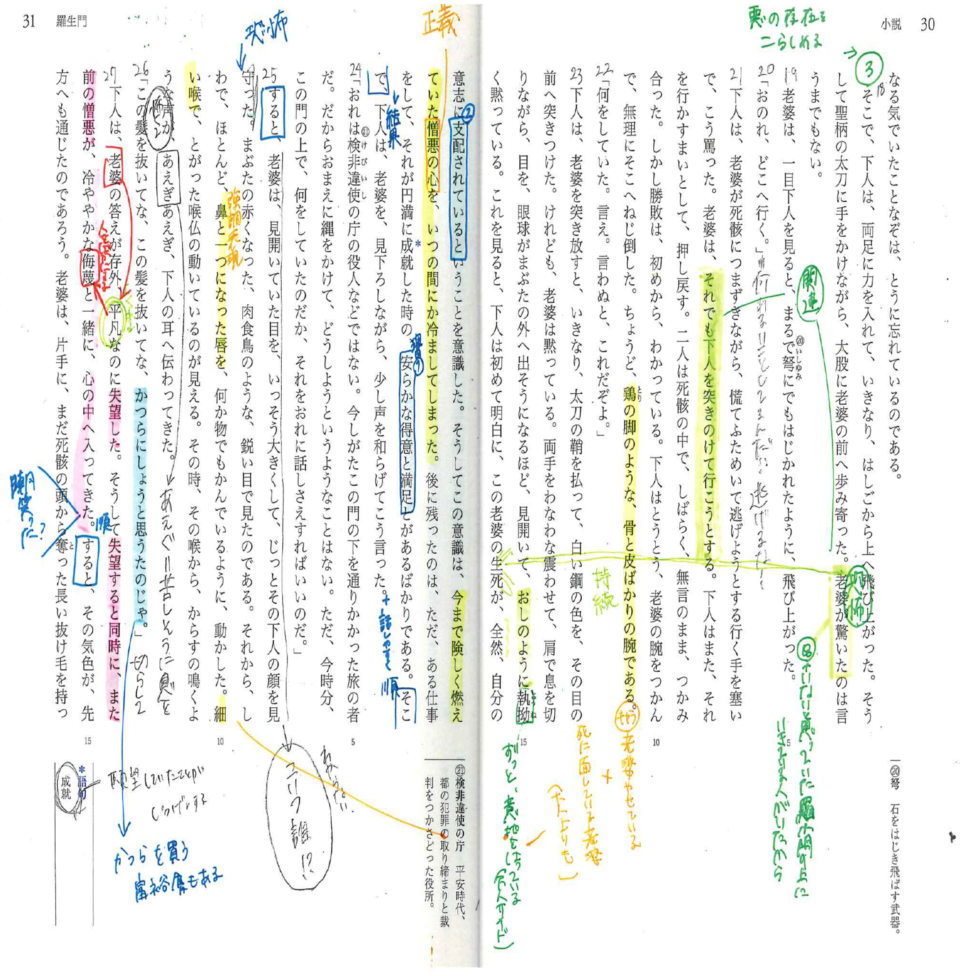 小説 30
なる気でいたことなぞは、とうに忘れているのである。
そこで、下人は、両足に力を入れて、いきなり、はしごから上へ飛び上がった。そう
して聖柄の太刀に手をかけながら、大股に老婆の前へ歩み寄った。老婆が驚いたのは言
うまでもない。
19 老婆は、一目下人を見ると、まるで弩にでもはじかれたように、飛び上がった。
20 「おのれ、どこへ行く。」
21 下人は、老婆が死骸につまずきながら、慌てふためいて逃げようとする行く手を塞い
で、こう罵った。老婆は、それでも下人を突きのけて行こうとする。下人はまた、それ
を行かすまいとして、押し戻す。二人は死骸の中で、しばらく、無言のまま、つかみ
合った。しかし勝敗は、初めから、わかっている。下人はとうとう、老婆の腕をつかん
で、無理にそこへねじ倒した。ちょうど、鶏の脚のような、骨と皮ばかりの腕である。
22 「何をしていた。言え。言わぬと、これだぞよ。」
23 下人は、老婆を突き放すと、いきなり、太刀の鞘を払って、白い鋼の色を、その目の
前へ突きつけた。けれども、老婆は黙っている。両手をわなわな震わせて、肩で息を切
りながら、目を、眼球がまぶたの外へ出そうになるほど、見開いて、おしのように執拗
く黙っている。これを見ると、下人は初めて明白に、この老婆の生死が、全然、自分の
⑳弩 石をはじき飛ばす武器。
悪の存在を
こらしめる
③
恐怖
関連
持続
31 羅生門
意志に支配されているということを意識した。そうしてこの意識は、今まで険しく燃え
ていた憎悪の心を、いつの間にか冷ましてしまった。後に残ったのは、ただ、ある仕事
をして、それが円満に成就した時の、安らかな得意と満足とがあるばかりである。そこ
で、下人は、老婆を、見下ろしながら、少し声を和らげてこう言った。
24 「おれは検非違使の庁の役人などではない。今しがたこの門の下を通りかかった旅の者
だ。だからおまえに縄をかけて、どうしようというようなことはない。ただ、今時分、
この門の上で、何をしていたのだか、それをおれに話しさえすればいいのだ。」
25 すると、老婆は、見開いていた目を、いっそう大きくして、じっとその下人の顔を見
守った。まぶたの赤くなった、肉食鳥のような、鋭い目で見たのである。それから、し
わで、ほとんど、鼻と一つになった唇を、何か物でもかんでいるように、動かした。細
い喉で、とがった喉仏の動いているのが見える。その時、その喉から、からすの鳴くよ
うな声が、あえぎあえぎ、下人の耳へ伝わってきた。
26 「この髪を抜いてな、この髪を抜いてな、かつらにしょうと思うたのじゃ。」
27 下人は、老婆の答えが存外、平凡なのに失望した。そうして失望すると同時に、また
前の憎悪が、冷ややかな侮蔑と一緒に、心の中へ入ってきた。すると、その気色が、先
方へも通じたのであろう。老婆は、片手に、まだ死骸の頭から奪った長い抜け毛を持っ
㉑検非違使の庁 平安時代、
都の犯罪の取り締まりと裁
判をつかさどった役所。
*語句
成就
正義
恐怖
結果
順
かつらを買う
富裕層もある